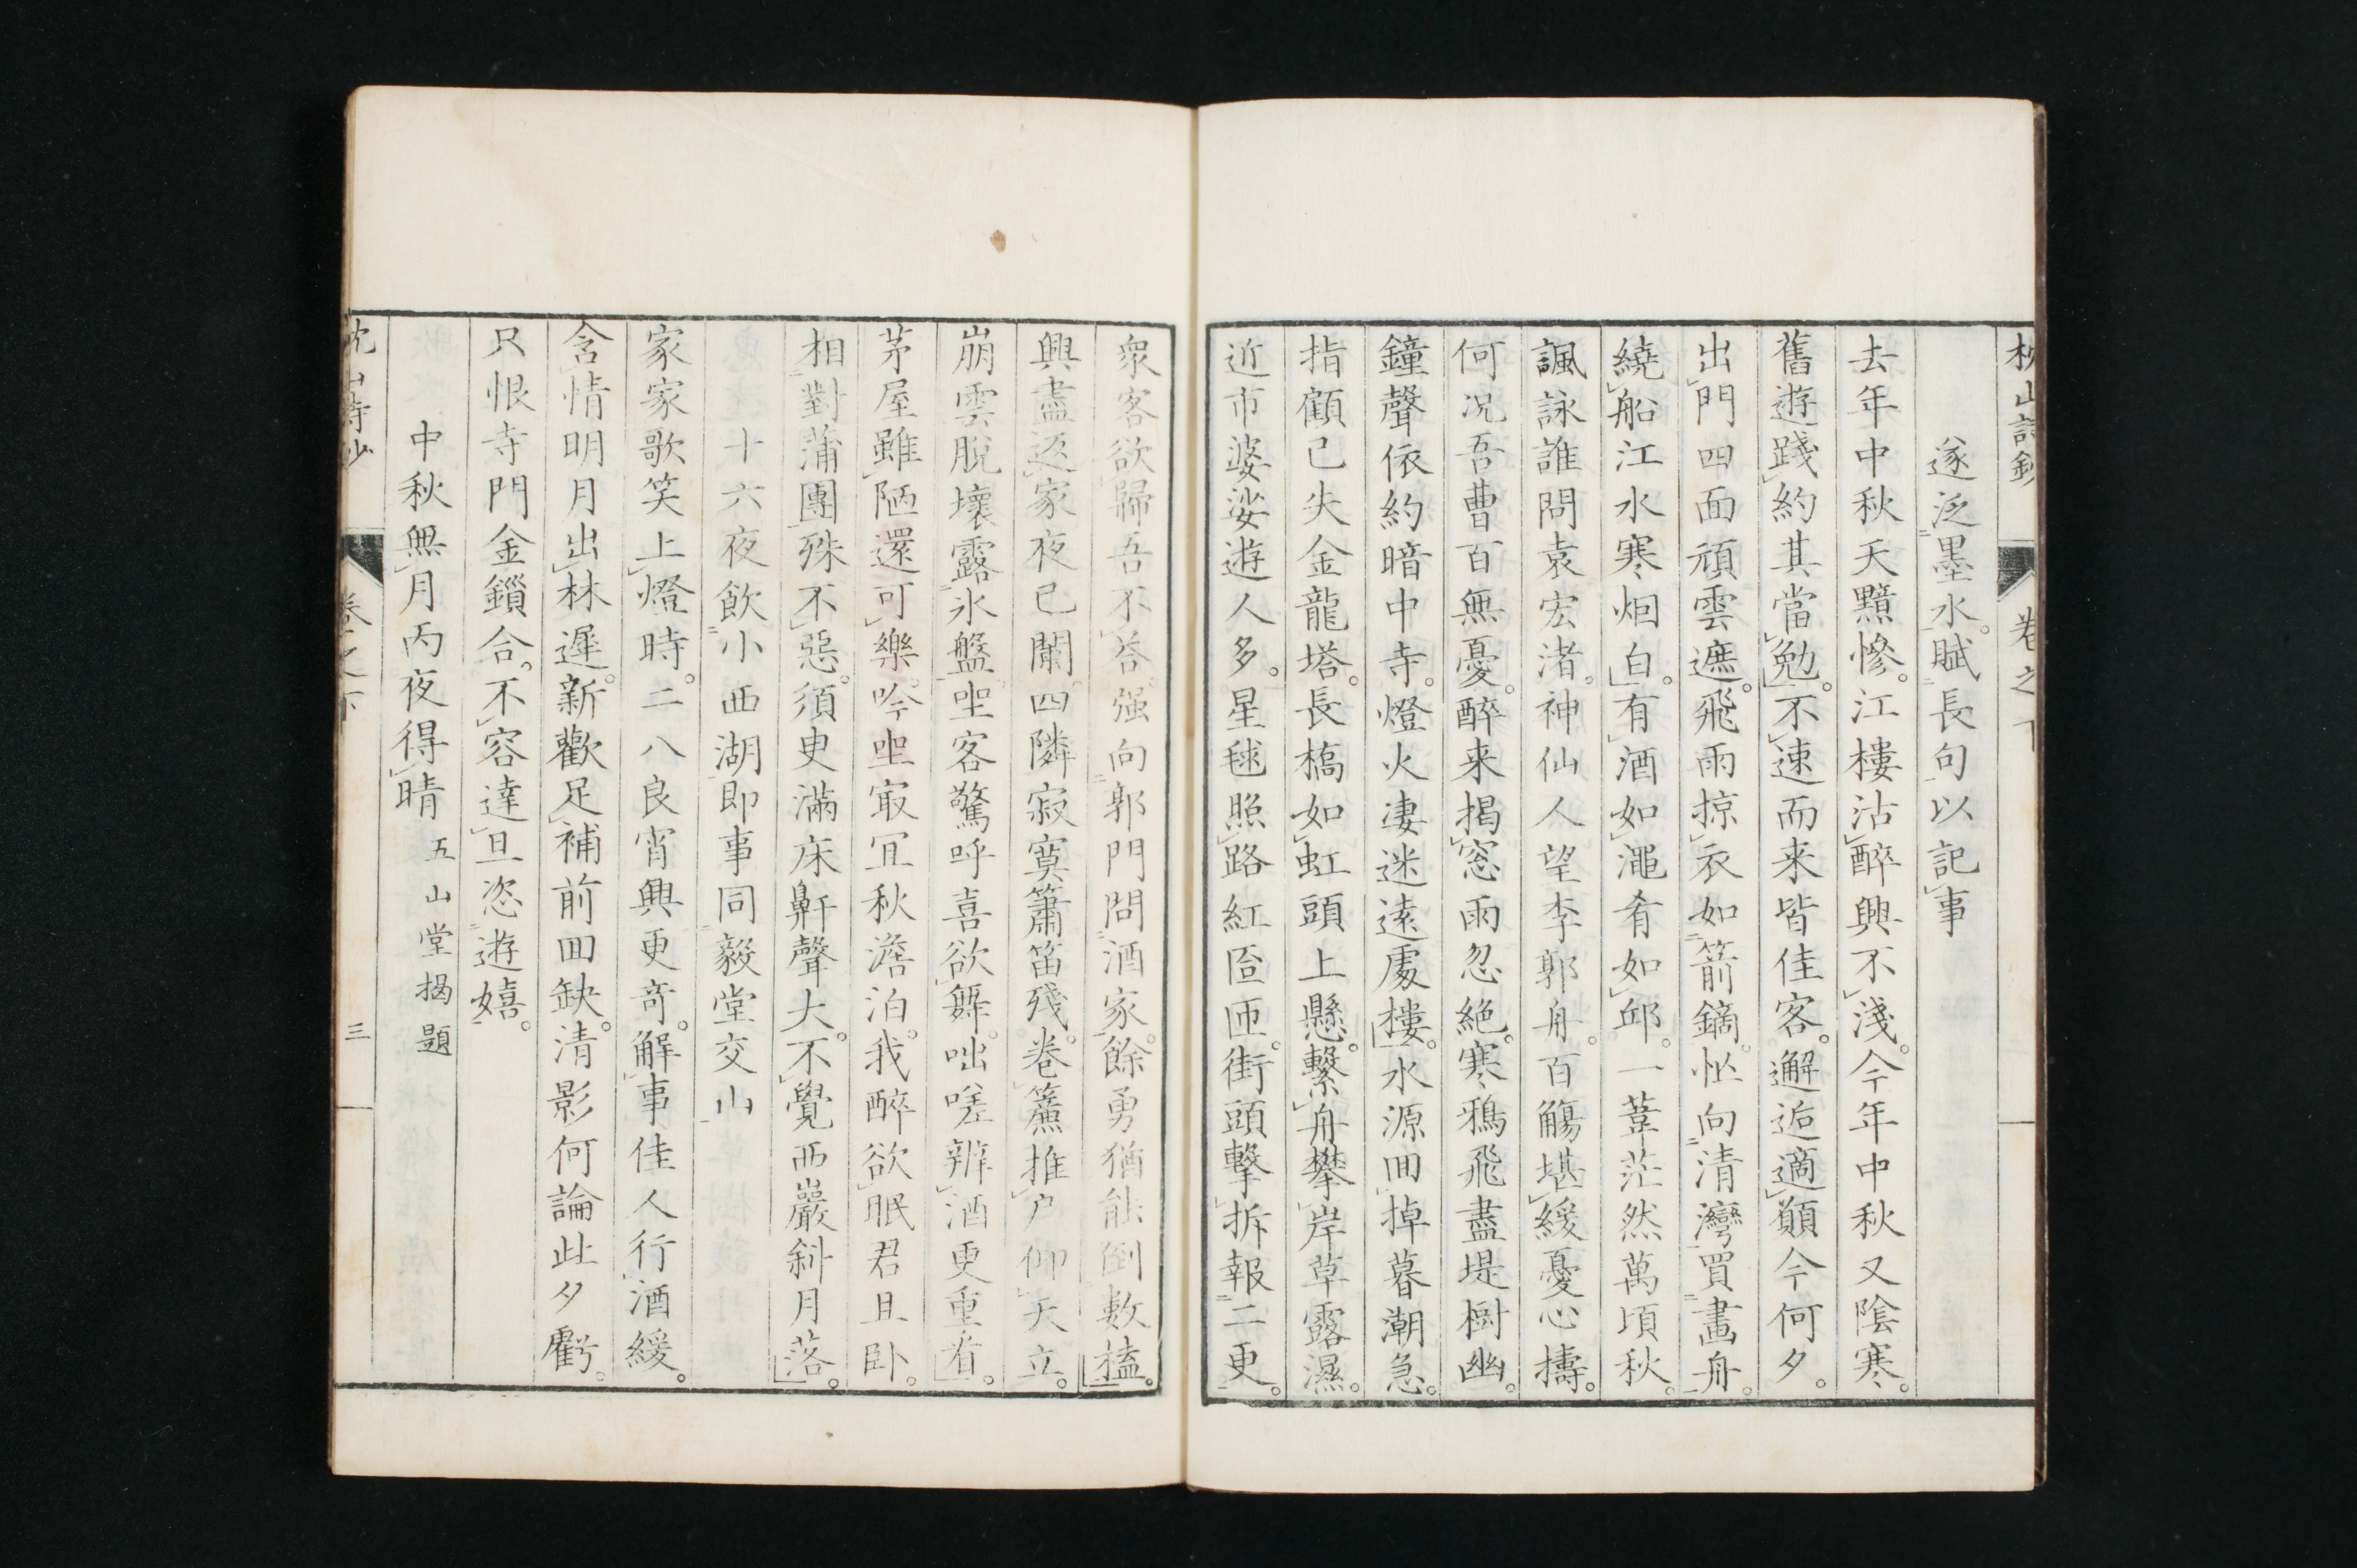 枕山詩鈔 卷之下
遂泛墨水賦長句以記事
去年中秋天黯慘。江樓沽醉興不淺。今年中秋又陰寒。
舊遊踐約其當勉。不速而来皆佳客。邂逅適願今何夕。
出門四面頑雲遮。飛雨掠衣如箭鏑。怭向清灣買畫舟。
繞船江水寒烟白。有酒如澠肴如邱。一葦茫然萬頃秋。
諷詠誰問袁宏渚。神仙人望李郭舟。百觴堪緩憂心擣。
何况吾曹百無憂。醉来揭窓雨忽絕。寒鴉飛盡堤樹幽。
鐘聲依約暗中寺。燈火凄迷遠處樓。水源回掉暮潮急。
指顧已失金龍塔。長橋如虹頭上懸。繫舟攀岸草露濕。
近市婆娑遊人多。星毬照路紅匼匝。街頭擊拆報二更。
衆客欲歸吾不荅。强向郭門問酒家。餘勇猶能倒數榼。
興盡返家夜已闌。四隣寂寞簫笛殘。卷簾推户仰天立。
崩雲脫壞露氷盤。坐客驚呼喜欲舞。咄嗟辨酒更重看。
茅屋雖陋還可樂。吟坐㝡宜秋澹泊。我醉欲眠君且卧。
相對蒲團殊不惡。須臾滿床鼾聲大。不覺西巖斜月落。
十六夜飲小西湖即事同毅堂交山
家家歌笑上燈時。二八良宵興更奇。解事佳人行酒緩。
含情明月出林遲。新歡足補前回缺。清影何論此夕虧。
只恨寺門金鎖合。不容達旦恣遊嬉。
中秋無月丙夜得晴 五山堂揭題
枕山詩鈔 卷之下 三